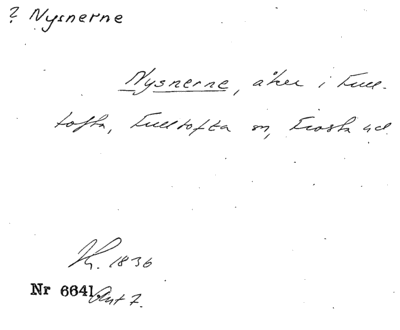 ? Nysnerne
Nysnerne, åker i Full-
tofta, Fulltofta sn, Frosta hd.
Nr 6641
1836
Akt 7.